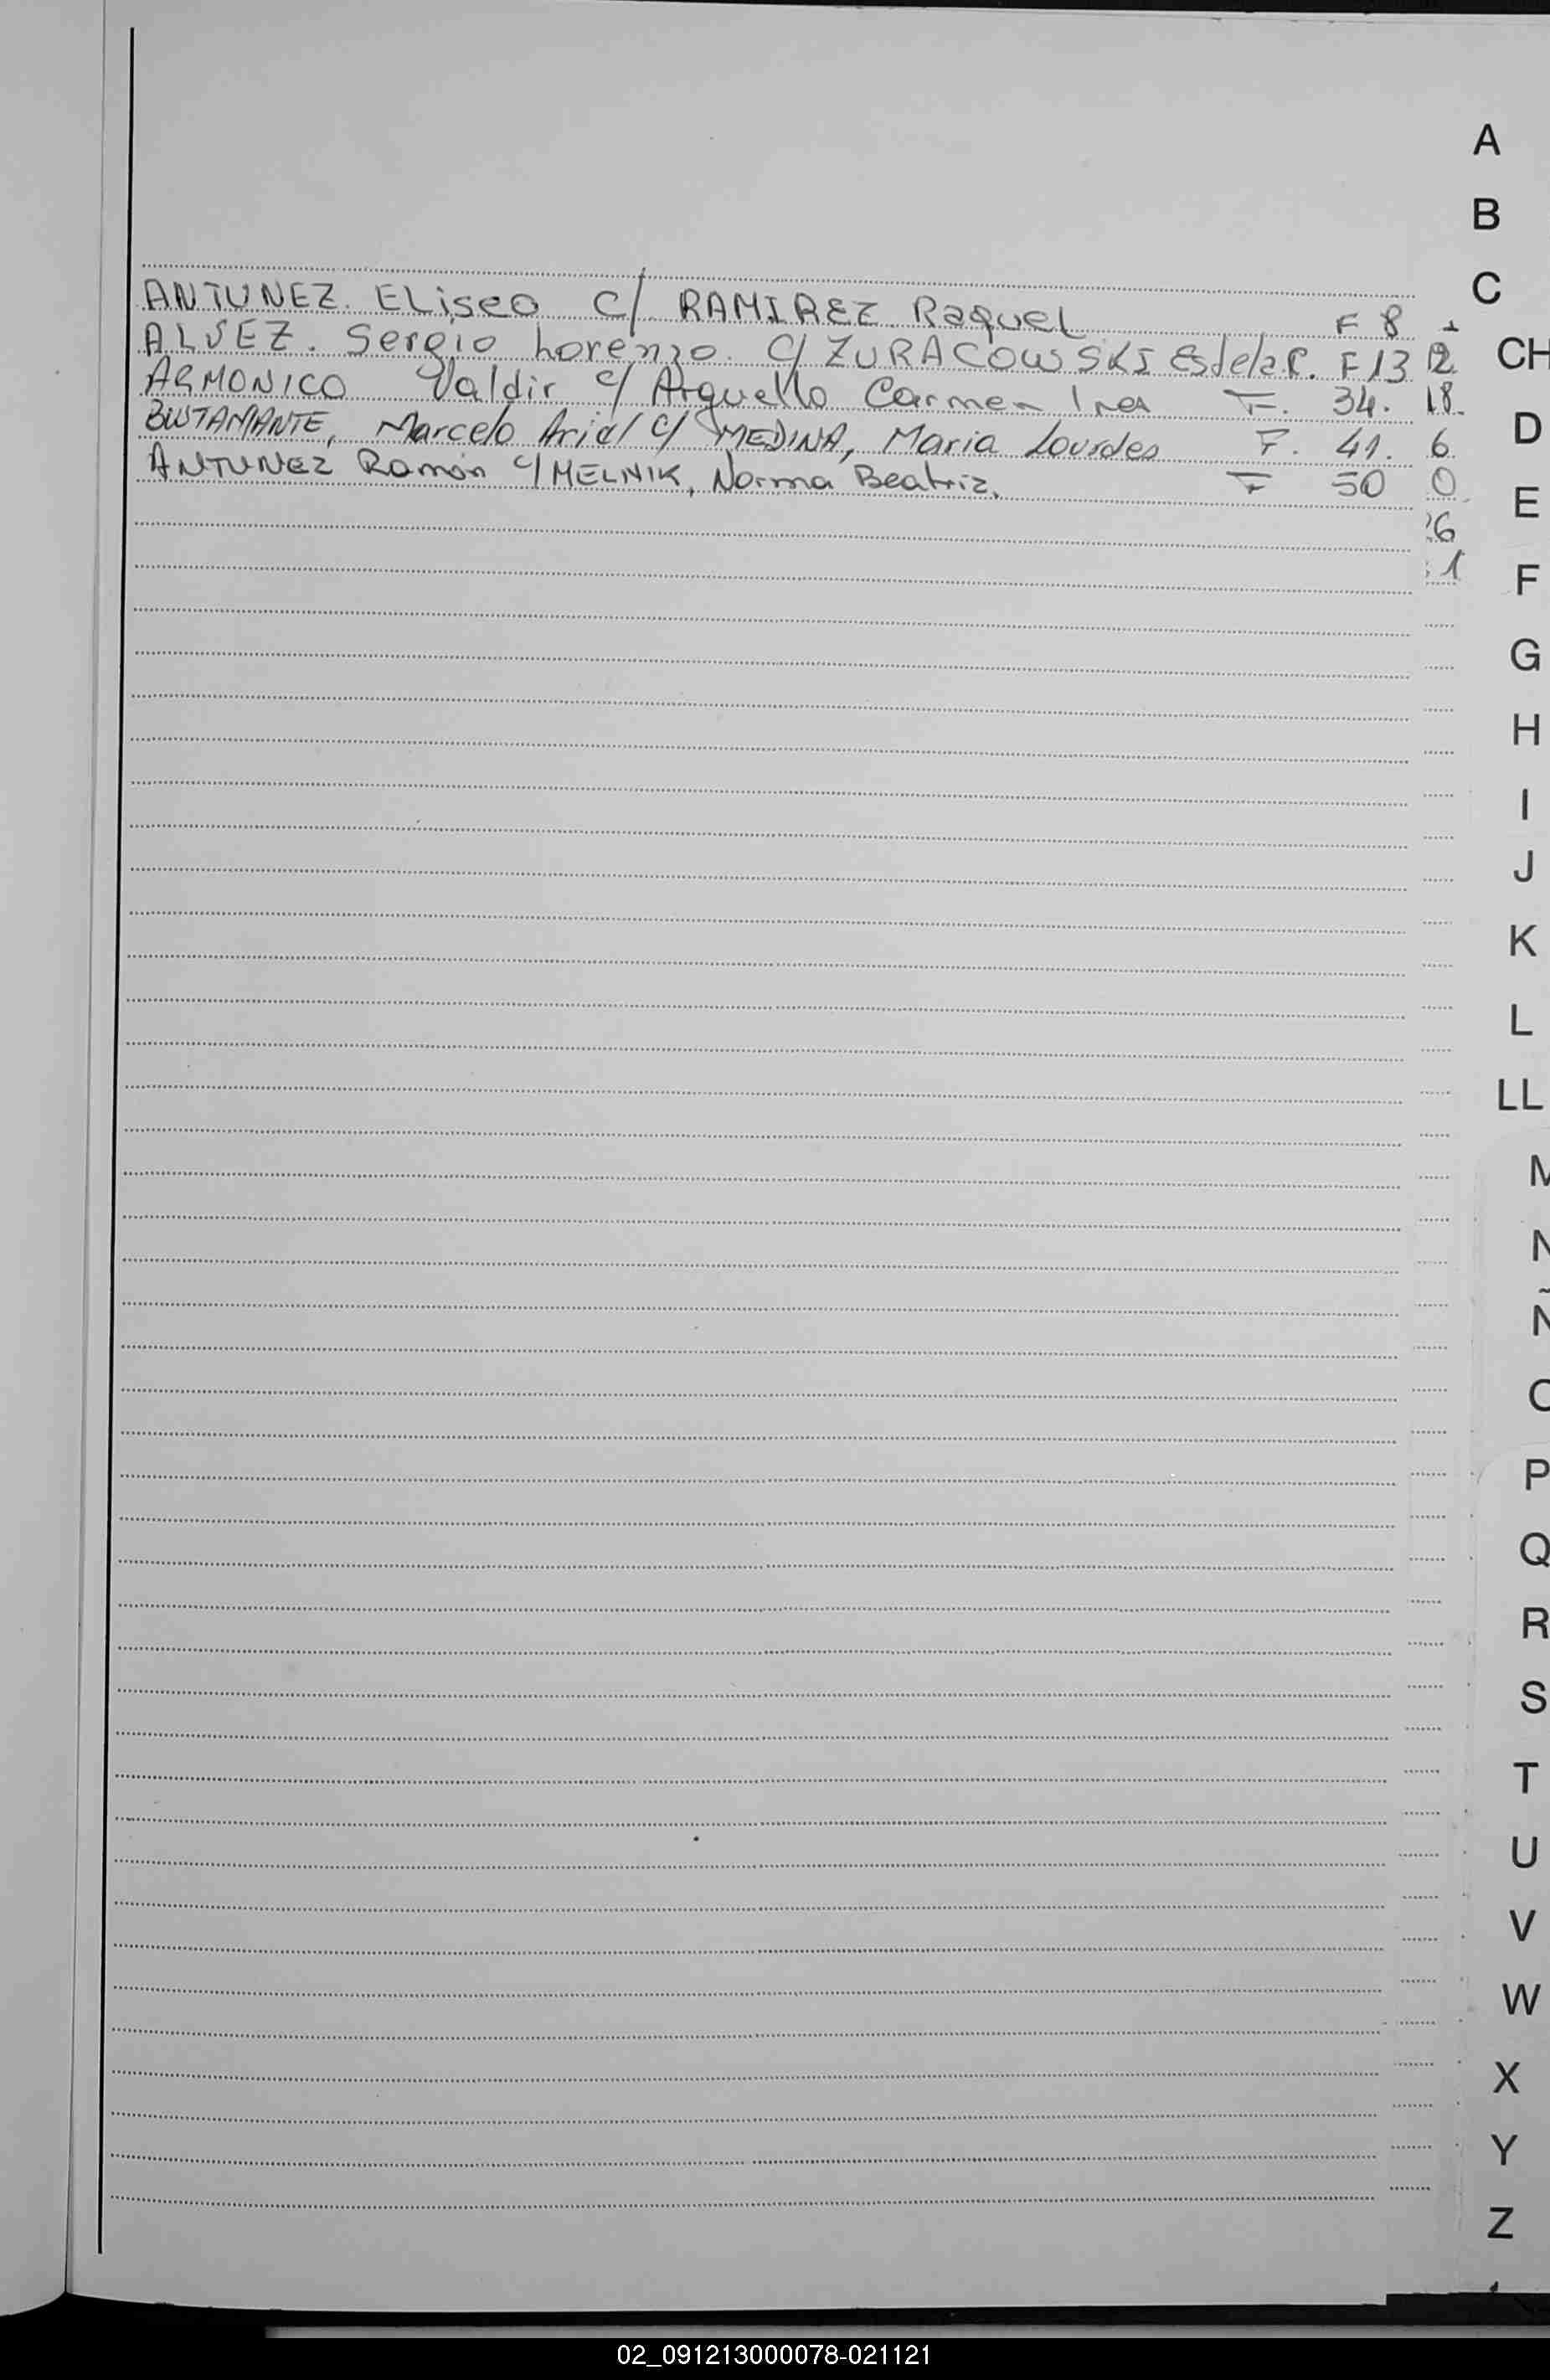 ANTUNEZ. ELiseo c/ RAMIREZ Raquel F 8
ALVEZ. Sergio Lorenzo. c/ ZURACOWSKI Estela R. F 13 12
ARMONICO Valdir c/ Arguello Carmen Ines F. 34. 18
BUSTAMANTE, Marcelo Ariel c/ MEDINA, Maria Lourdes F. 41. 6
ANTUNEZ Ramón c/ MELNIK, Norma Beatriz. F 50 0
26
1
A
B
C
CH
D
E
F
G
H
I
J
K
L
LL
M
N
Ñ
O
P
Q
R
S
T
U
V
W
X
Y
Z
02_091213000078-021121